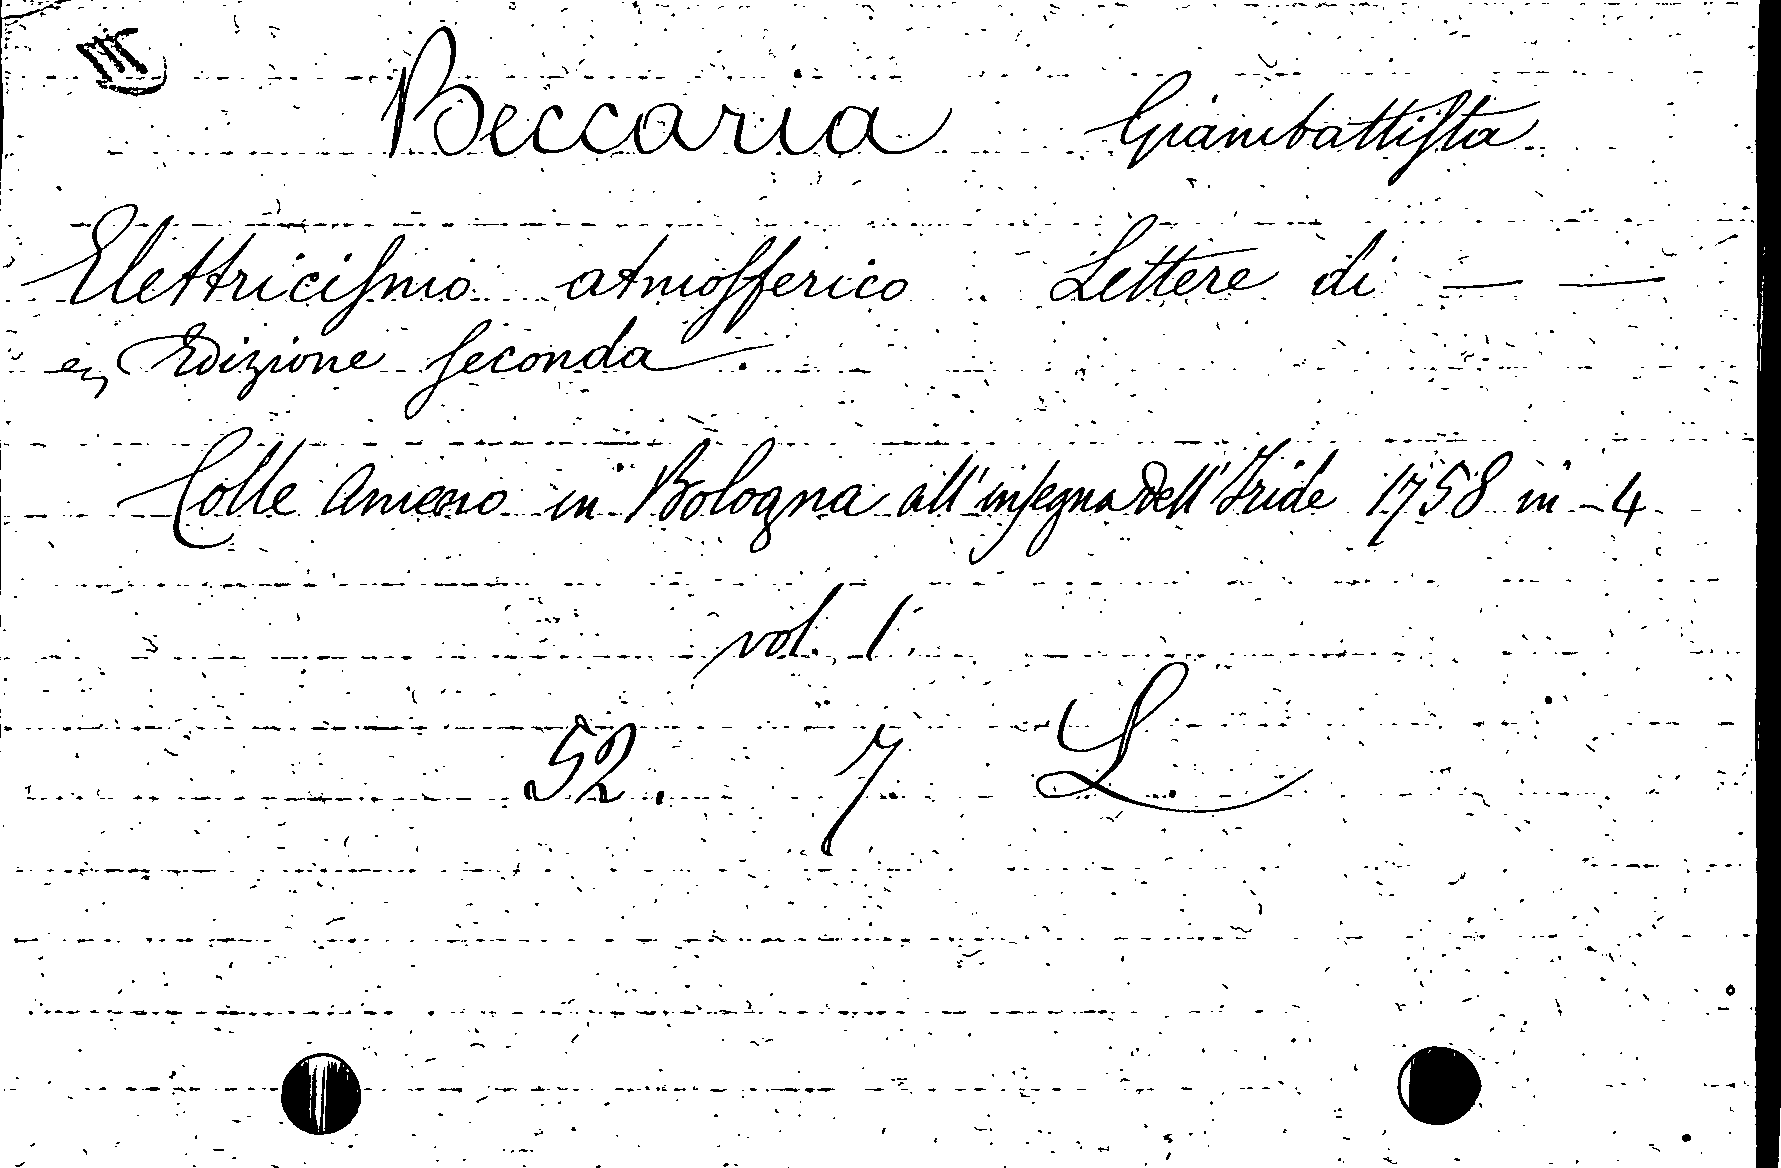 Beccaria Giambattiſta
Elettriciſmo atmoſferico. Lettere di — —
Edizione ſeconda.
Colle Ameno in Bologna all'inſegna dell'Iride 1758 in -4
vol. 1.
52. 7 L